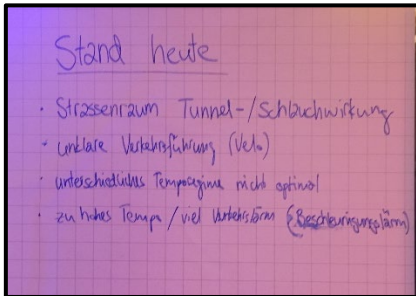 Stand heute
• Strassenraum Tunnel-/Schlauchwirkung
• unklare Verkehrsführung (Velo)
• unterschiedliches Temporegime nicht optimal
• zu hohes Tempo / viel Verkehrslärm (Beschleunigungslärm)